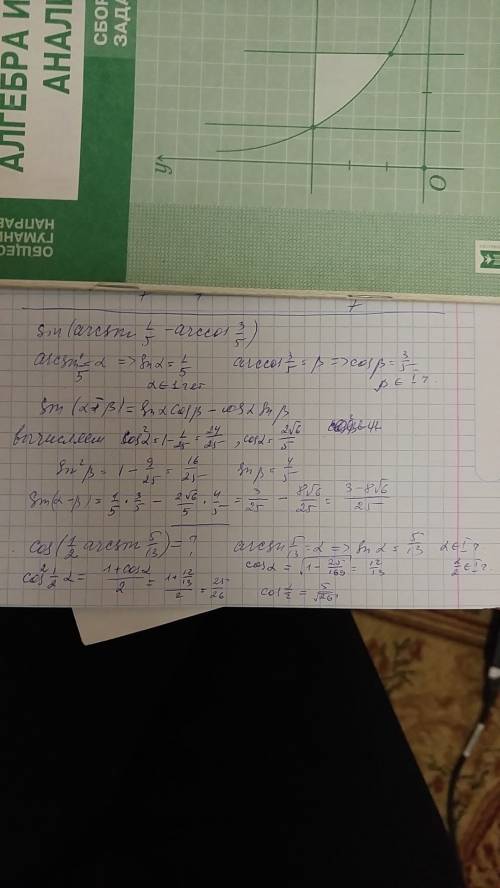 АЛГЕБРА И
АНАЛИ
СБОР
ЗАДА
ОБЩЕС
ГУМАНИ
НАПРАВ
y
O
sin(arcsin 1/5 - arccos 3/5)
arcsin 1/5 = α => sin α = 1/5 arccos 3/5 = β => cos β = 3/5
α ∈ 1 чет β ∈ I ч.
sin(α-β) = sin α cos β - cos α sin β
вычисляем cos²α = 1 - 1/25 = 24/25, cos α = 2√6/5
sin²β = 1 - 9/25 = 16/25 sin β = 4/5
sin(α-β) = 1/5 · 3/5 - 2√6/5 · 4/5 = 3/25 - 8√6/25 = (3-8√6)/25
cos(1/2 arcsin 5/13) = ? arcsin 5/13 = α => sin α = 5/13 α ∈ I ч
cos² 1/2 α = (1+cos α)/2 = (1+12/13)/2 = 25/26 cos α = √(1 - 25/169) = 12/13 α/2 ∈ I ч.
cos α/2 = 5/√26